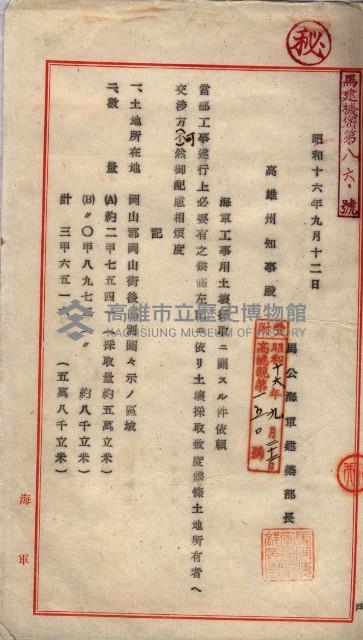 秘
馬建機密第八六號
昭和十六年九月十二日
馬公海軍建築部長
高雄州知事殿
海軍工事用土壤採取ニ關スル件依頼
當部工事遂行上必要有之候條左記ニ依リ土壤採取致度候條土地所有者ヘ
交渉方可然御配慮相煩度
記
一、土地所在地 岡山郡岡山街後 別圖々示ノ區域
二、數量 (A)約二甲七五四 採取量約五萬立米
(B)〃〇甲八九七 〃 約八千立米)
計 三甲六五一 (五萬八千立米)
昭和十六年九月二十二日
高雄市立歷史博物館
KAOHSIUNG MUSEUM OF HISTORY
海軍